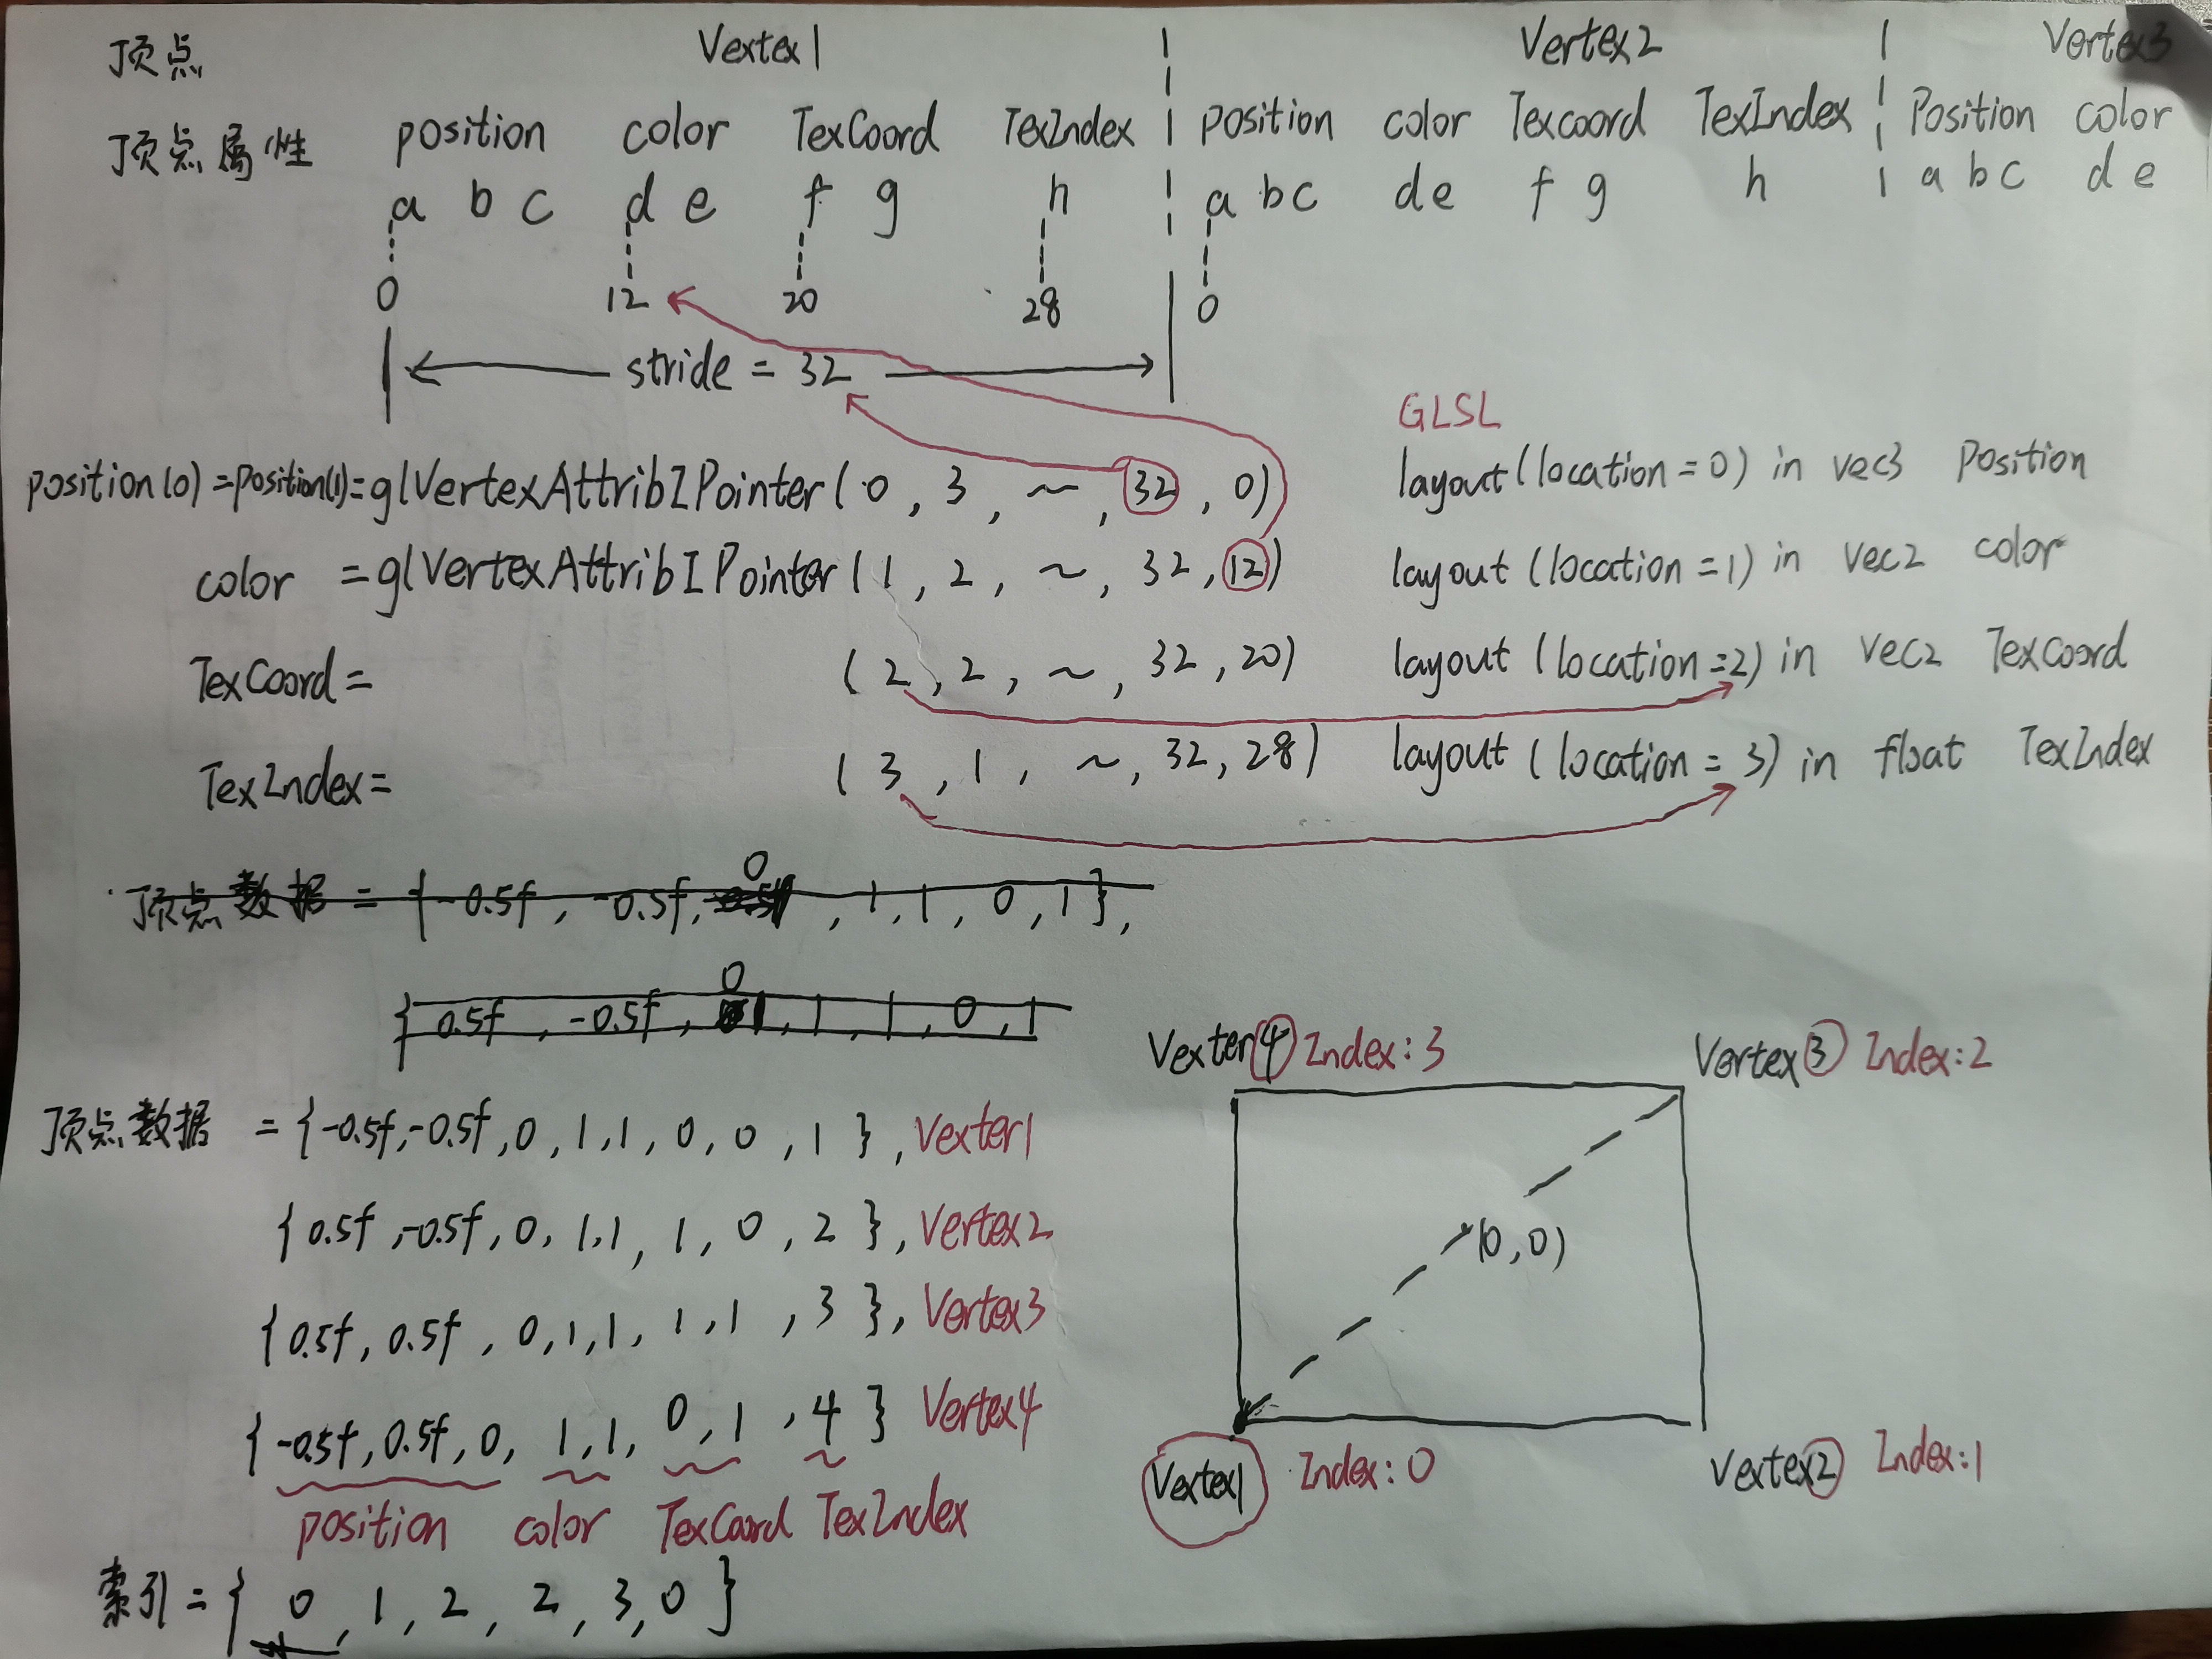 顶点 Vextex1 Vertex2 Vertex3
顶点属性 position color TexCoord TexIndex position color Texcoord TexIndex Position color
a b c d e f g h a b c d e f g h a b c d e
0 12 20 28 0
stride = 32
GLSL
position(0)=position(1)=glVertexAttribIPointer(0, 3, ~, 32, 0) layout(location=0) in vec3 position
color =glVertexAttribIPointer(1, 2, ~, 32, 12) layout (location=1) in vec2 color
TexCoord= (2, 2, ~, 32, 20) layout (location=2) in vec2 TexCoord
TexIndex= (3, 1, ~, 32, 28) layout (location=3) in float TexIndex
0
顶点数据 = {-0.5f, -0.5f, , 1, 1, 0, 1},
0
{0.5f, -0.5f, , 1, 1, 0, 1
Vexter4 Index:3 Vertex3 Index:2
顶点数据 ={-0.5f,-0.5f,0,1,1,0,0,1}, Vexter1
{0.5f,-0.5f,0,1,1,1,0,2}, Vertex2
(0,0)
{0.5f,0.5f,0,1,1,1,1,3}, Vertex3
{-0.5f,0.5f,0,1,1,0,1,4} Vertex4
Vextex1 Index:0 Vertex2 Index:1
position color TexCoord TexIndex
索引={0,1,2,2,3,0}